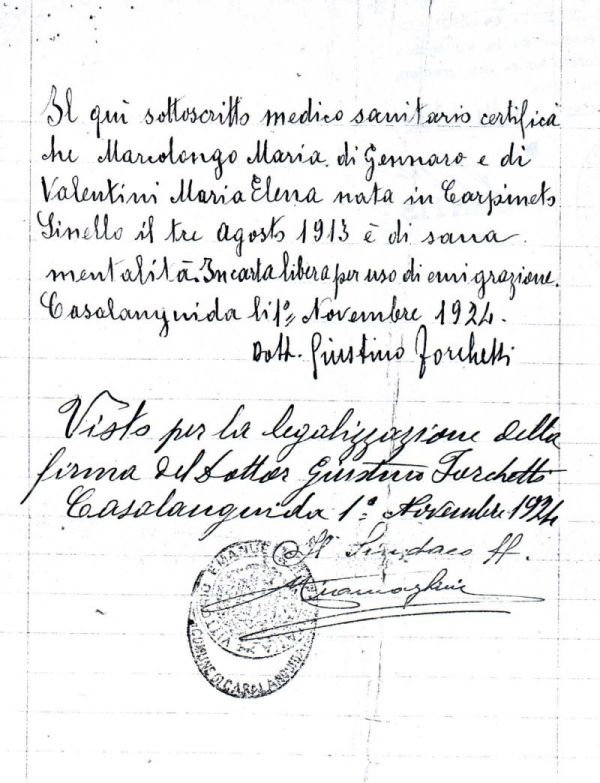 Il quì sottoscritto medico sanitario certifica
che Marcolongo Maria di Gennaro e di
Valentini Maria Elena nata in Carpineto
Sinello il tre Agosto 1913 è di sana
mentalità. In carta libera per uso di emigrazione.
Casalanguida li 1º Novembre 1924.
Dott. Giustino Forchetti
Visto per la legalizzazione della
firma del Dottor Giustino Forchetti
Casalanguida 1º Novembre 1924
Il Sindaco ff.
VITTORIO EMANUELE
COMUNE DI CASALANGUIDA